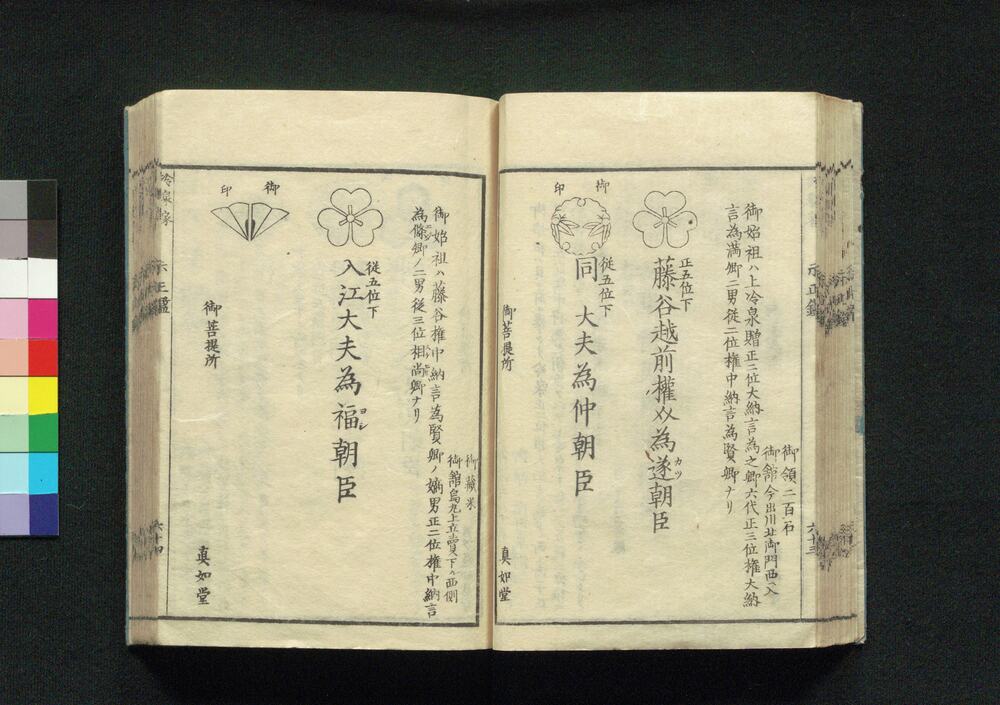 御領二百石
御館今出川北御門西入
御始祖ハ上冷泉贈正二位大納言為之卿六代正三位権大納
言為満卿二男従二位権中納言為賢卿ナリ
正五位下
藤谷越前權从為遂朝臣
カツ
従五位下
同 大夫為仲朝臣
御印
御菩提所
真如堂
六十三
御藏米
御館烏丸上立賣下ル西側
御始祖ハ藤谷権中納言為賢卿ノ嫡男正二位権中納言
為條卿ノ二男従三位相尚卿ナリ
従五位下
入江大夫為福朝臣
ヨシ
御印
御菩提所
真如堂
六十四